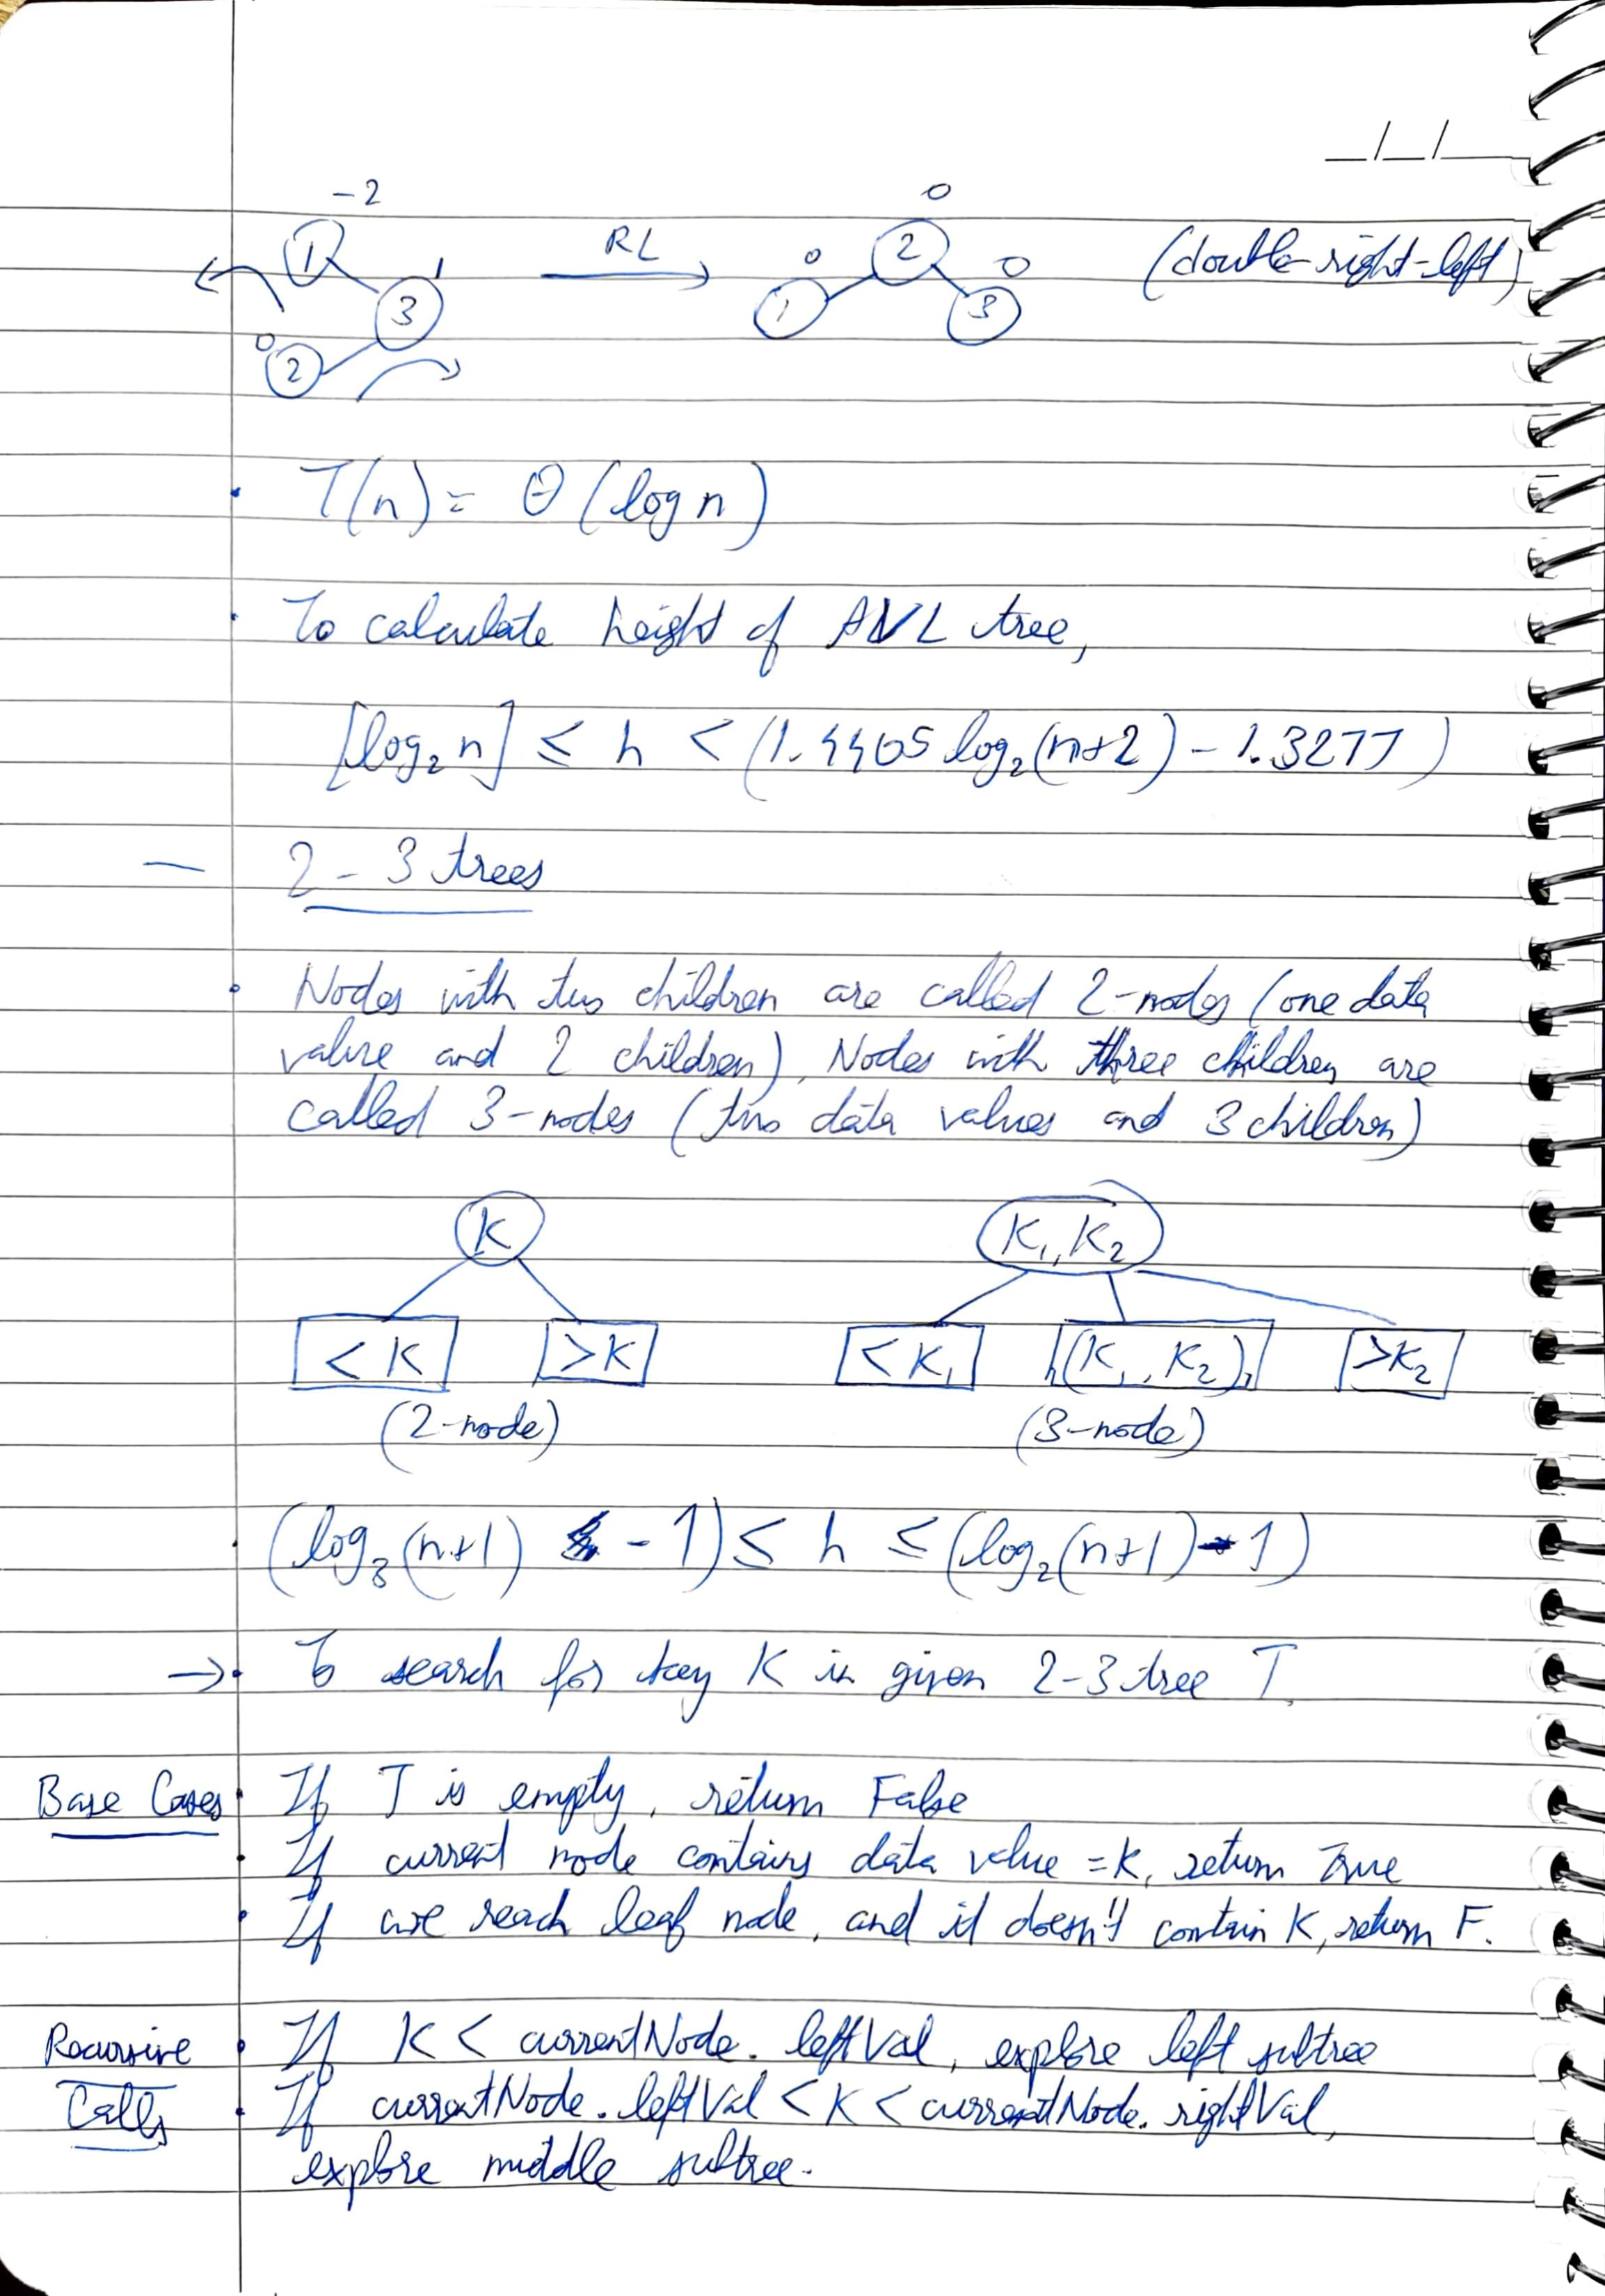 _/_/__
-2
0
1
RL
0
2
0
(double-right-left)
1
3
1
3
0
2
• T(n) = Θ (log n)
• To calculate height of AVL tree,
[log₂ n] ≤ h < (1.4405 log₂(n+2) - 1.3277)
— 2-3 trees
• Nodes with two children are called 2-nodes (one data
value and 2 children). Nodes with three children are
called 3-nodes (two data values and 3 children)
K
K₁, K₂
< K
>K
< K₁
(K₁, K₂)
>K₂
(2-node)
(3-node)
• (log₃(n+1) - 1) ≤ h ≤ (log₂(n+1) - 1)
→ • To search for key K in given 2-3 tree T.
Base Cases • If T is empty, return False
• If current node contains data value = K, return True
• If we reach leaf node, and it doesn't contain K, return F.
Recursive • If K < currentNode. leftVal, explore left subtree
Calls • If currentNode. leftVal < K < currentNode. rightVal,
explore middle subtree.